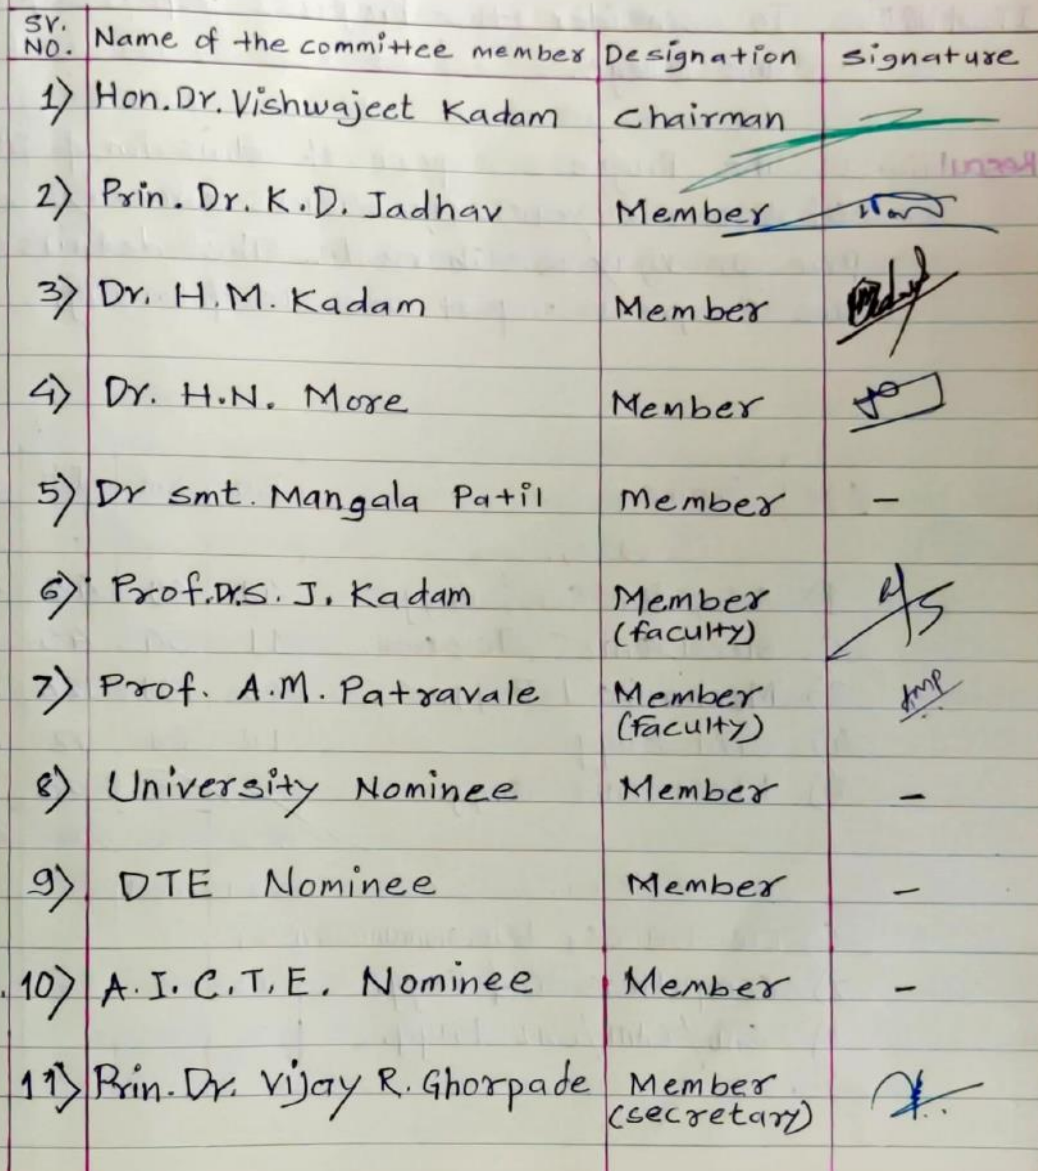 Sr. No. Name of the committee member Designation Signature
1) Hon. Dr. Vishwajeet Kadam Chairman
2) Prin. Dr. K.D. Jadhav Member
3) Dr. H.M. Kadam Member
4) Dr. H.N. More Member
5) Dr smt. Mangala Patil Member -
6) Prof. Dr. S. J. Kadam Member
(faculty)
7) Prof. A.M. Patravale Member
(faculty)
8) University Nominee Member -
9) DTE Nominee Member -
10) A.I.C.T.E. Nominee Member -
11) Prin. Dr. Vijay R. Ghorpade Member
(secretary)